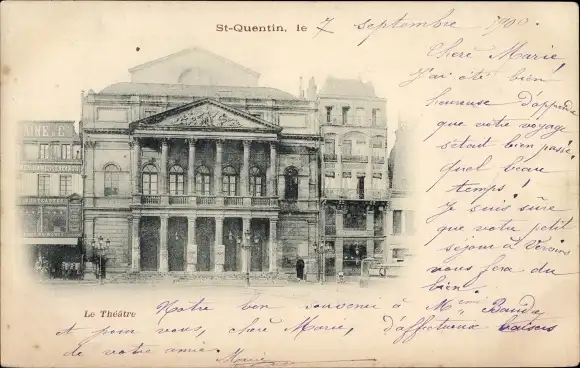 St-Quentin, le 7 septembre 1900.
Chère Marie,
J'ai été bien
heureuse d'apprendre
que votre voyage
s'était bien passé.
Quel beau
temps !
Je suis sûre
que votre petit
séjour à Vervins
vous fera du
bien.
Le Théâtre
Notre bon souvenir à Mme
et pour vous, chère Marie, d'affectueux baisers
de votre amie.
Marie